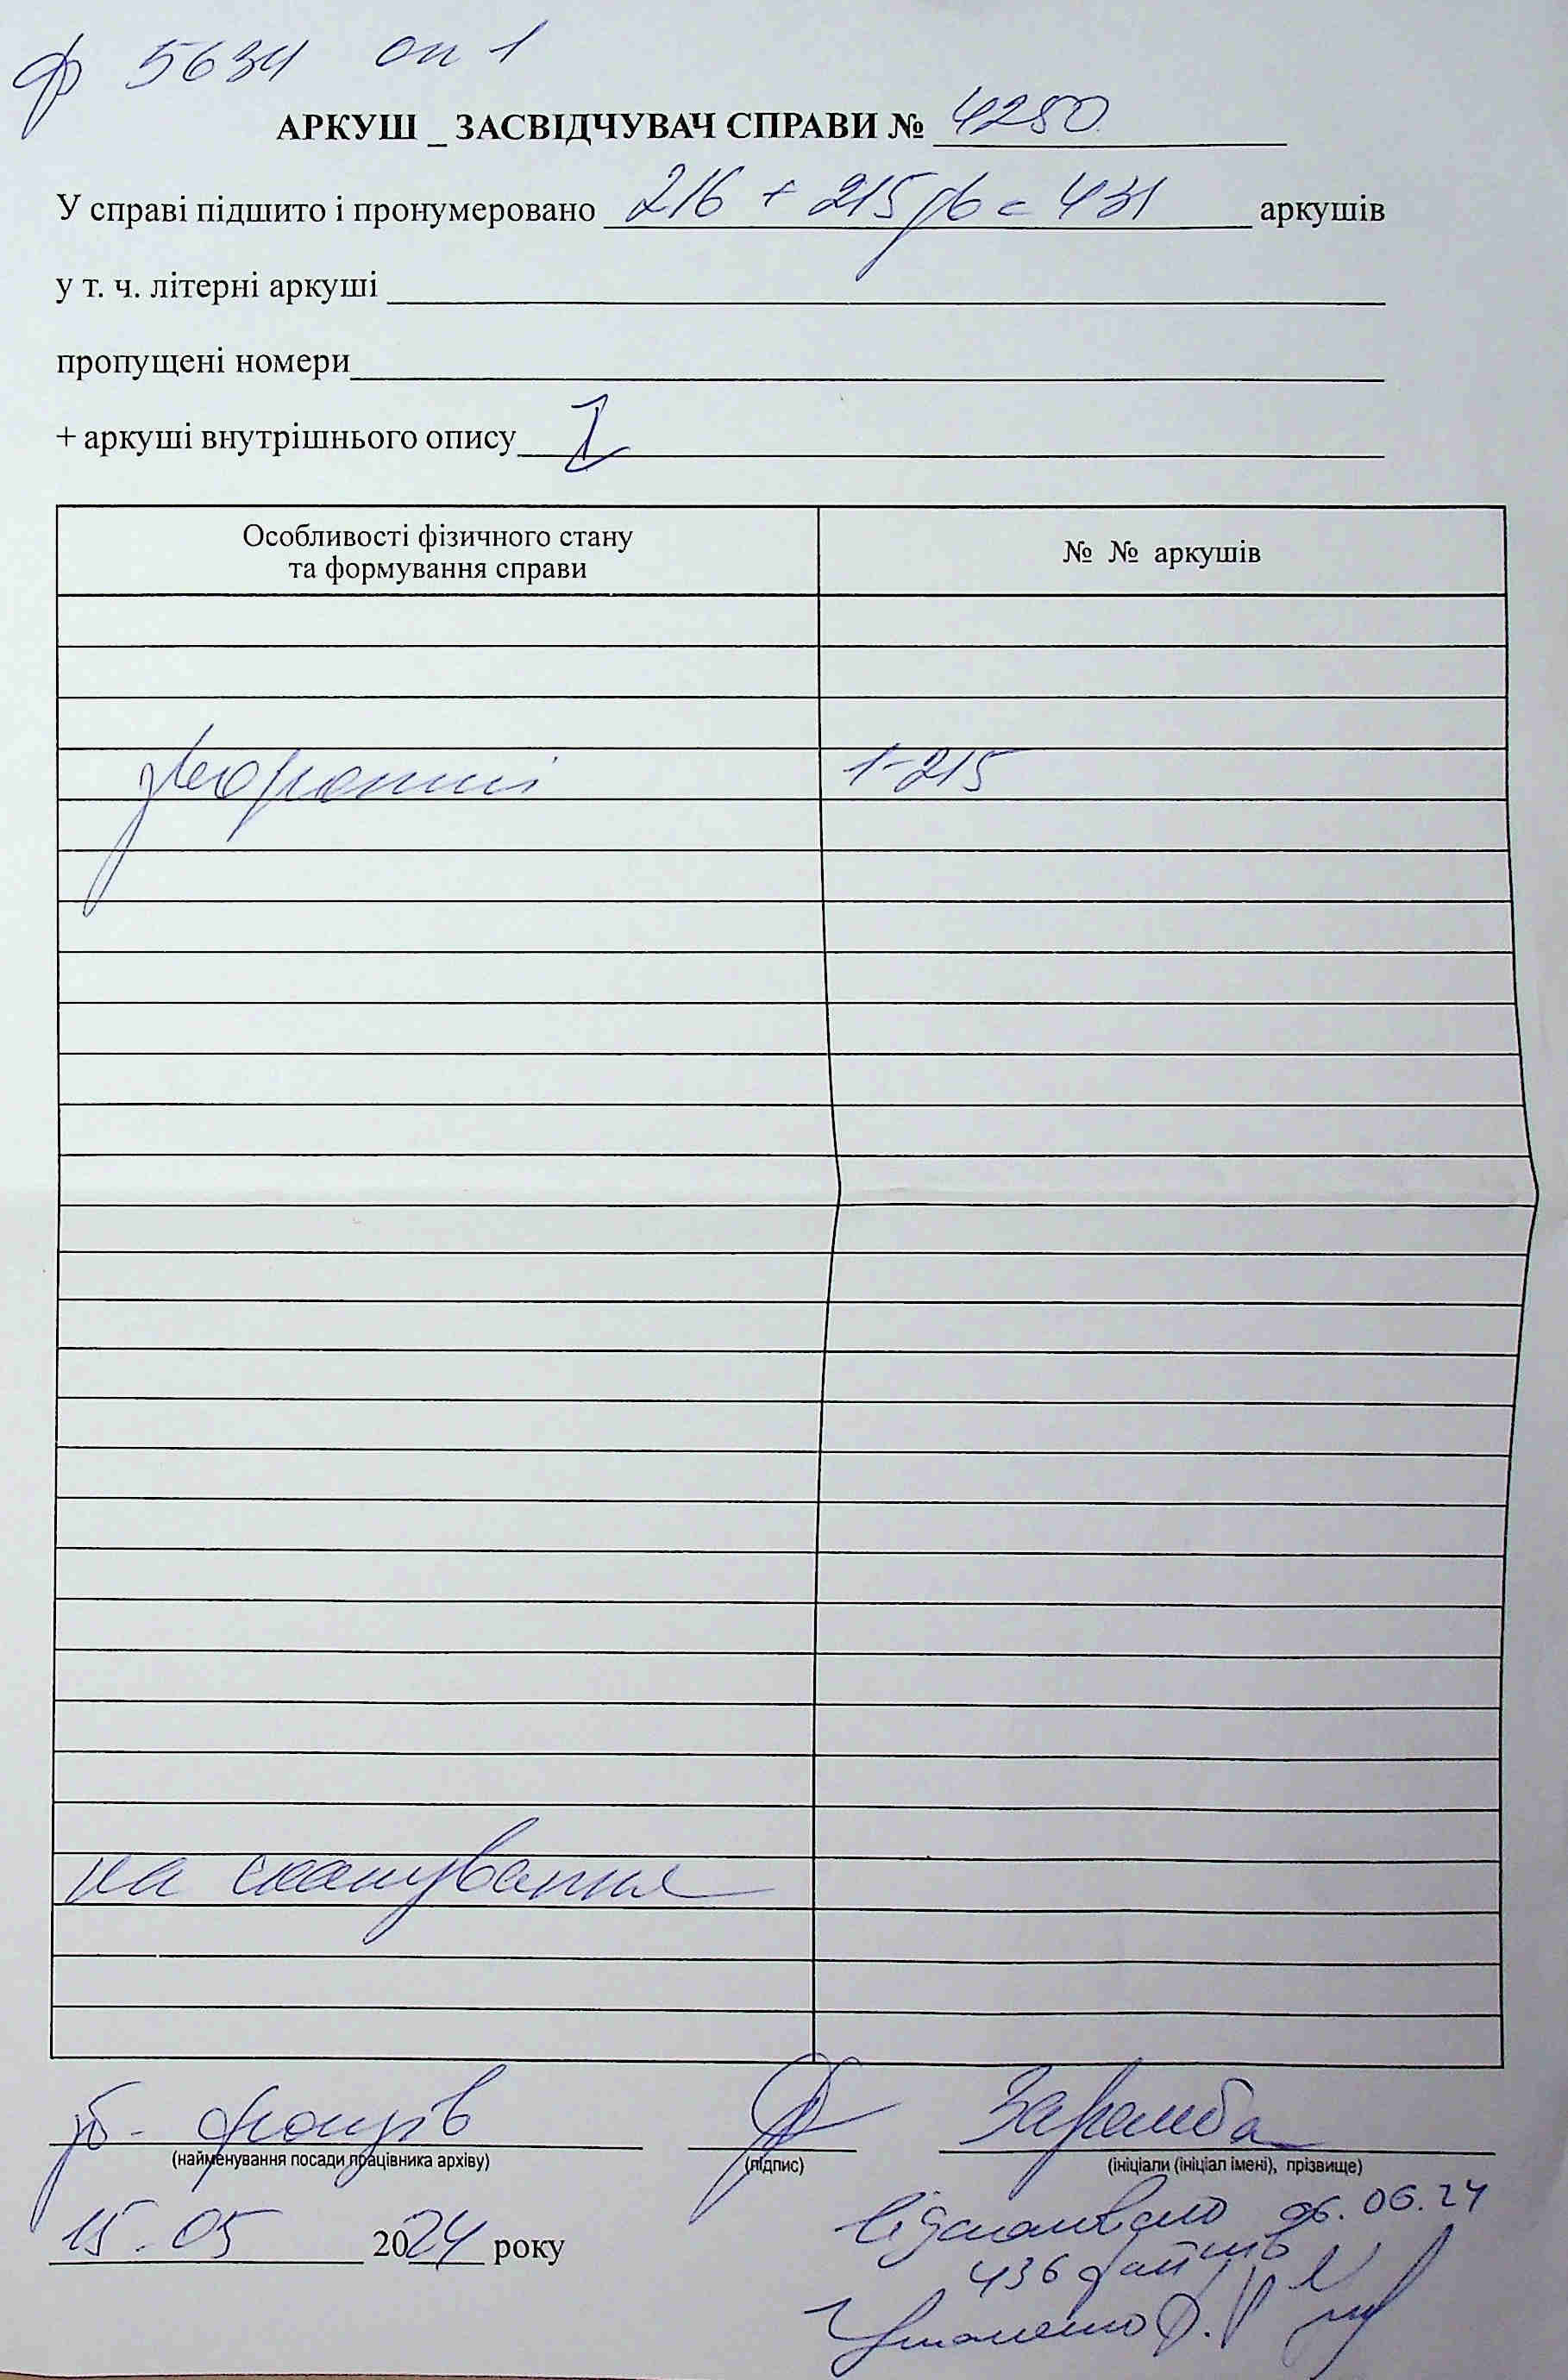 ф 5634 оп 1
АРКУШ _ ЗАСВІДЧУВАЧ СПРАВИ № 4250
У справі підшито і пронумеровано 216 + 215 зв = 431 аркушів
у т. ч. літерні аркуші
пропущені номери
+ аркуші внутрішнього опису 1
Особливості фізичного стану
та формування справи
№ № аркушів
зворотні 1-215
на сканування
зб. фондів Заремба
(найменування посади працівника архіву) (підпис) (ініціали (ініціал імені), прізвище)
15.05 2024 року
Відскановано 06.06.24
436 файлів